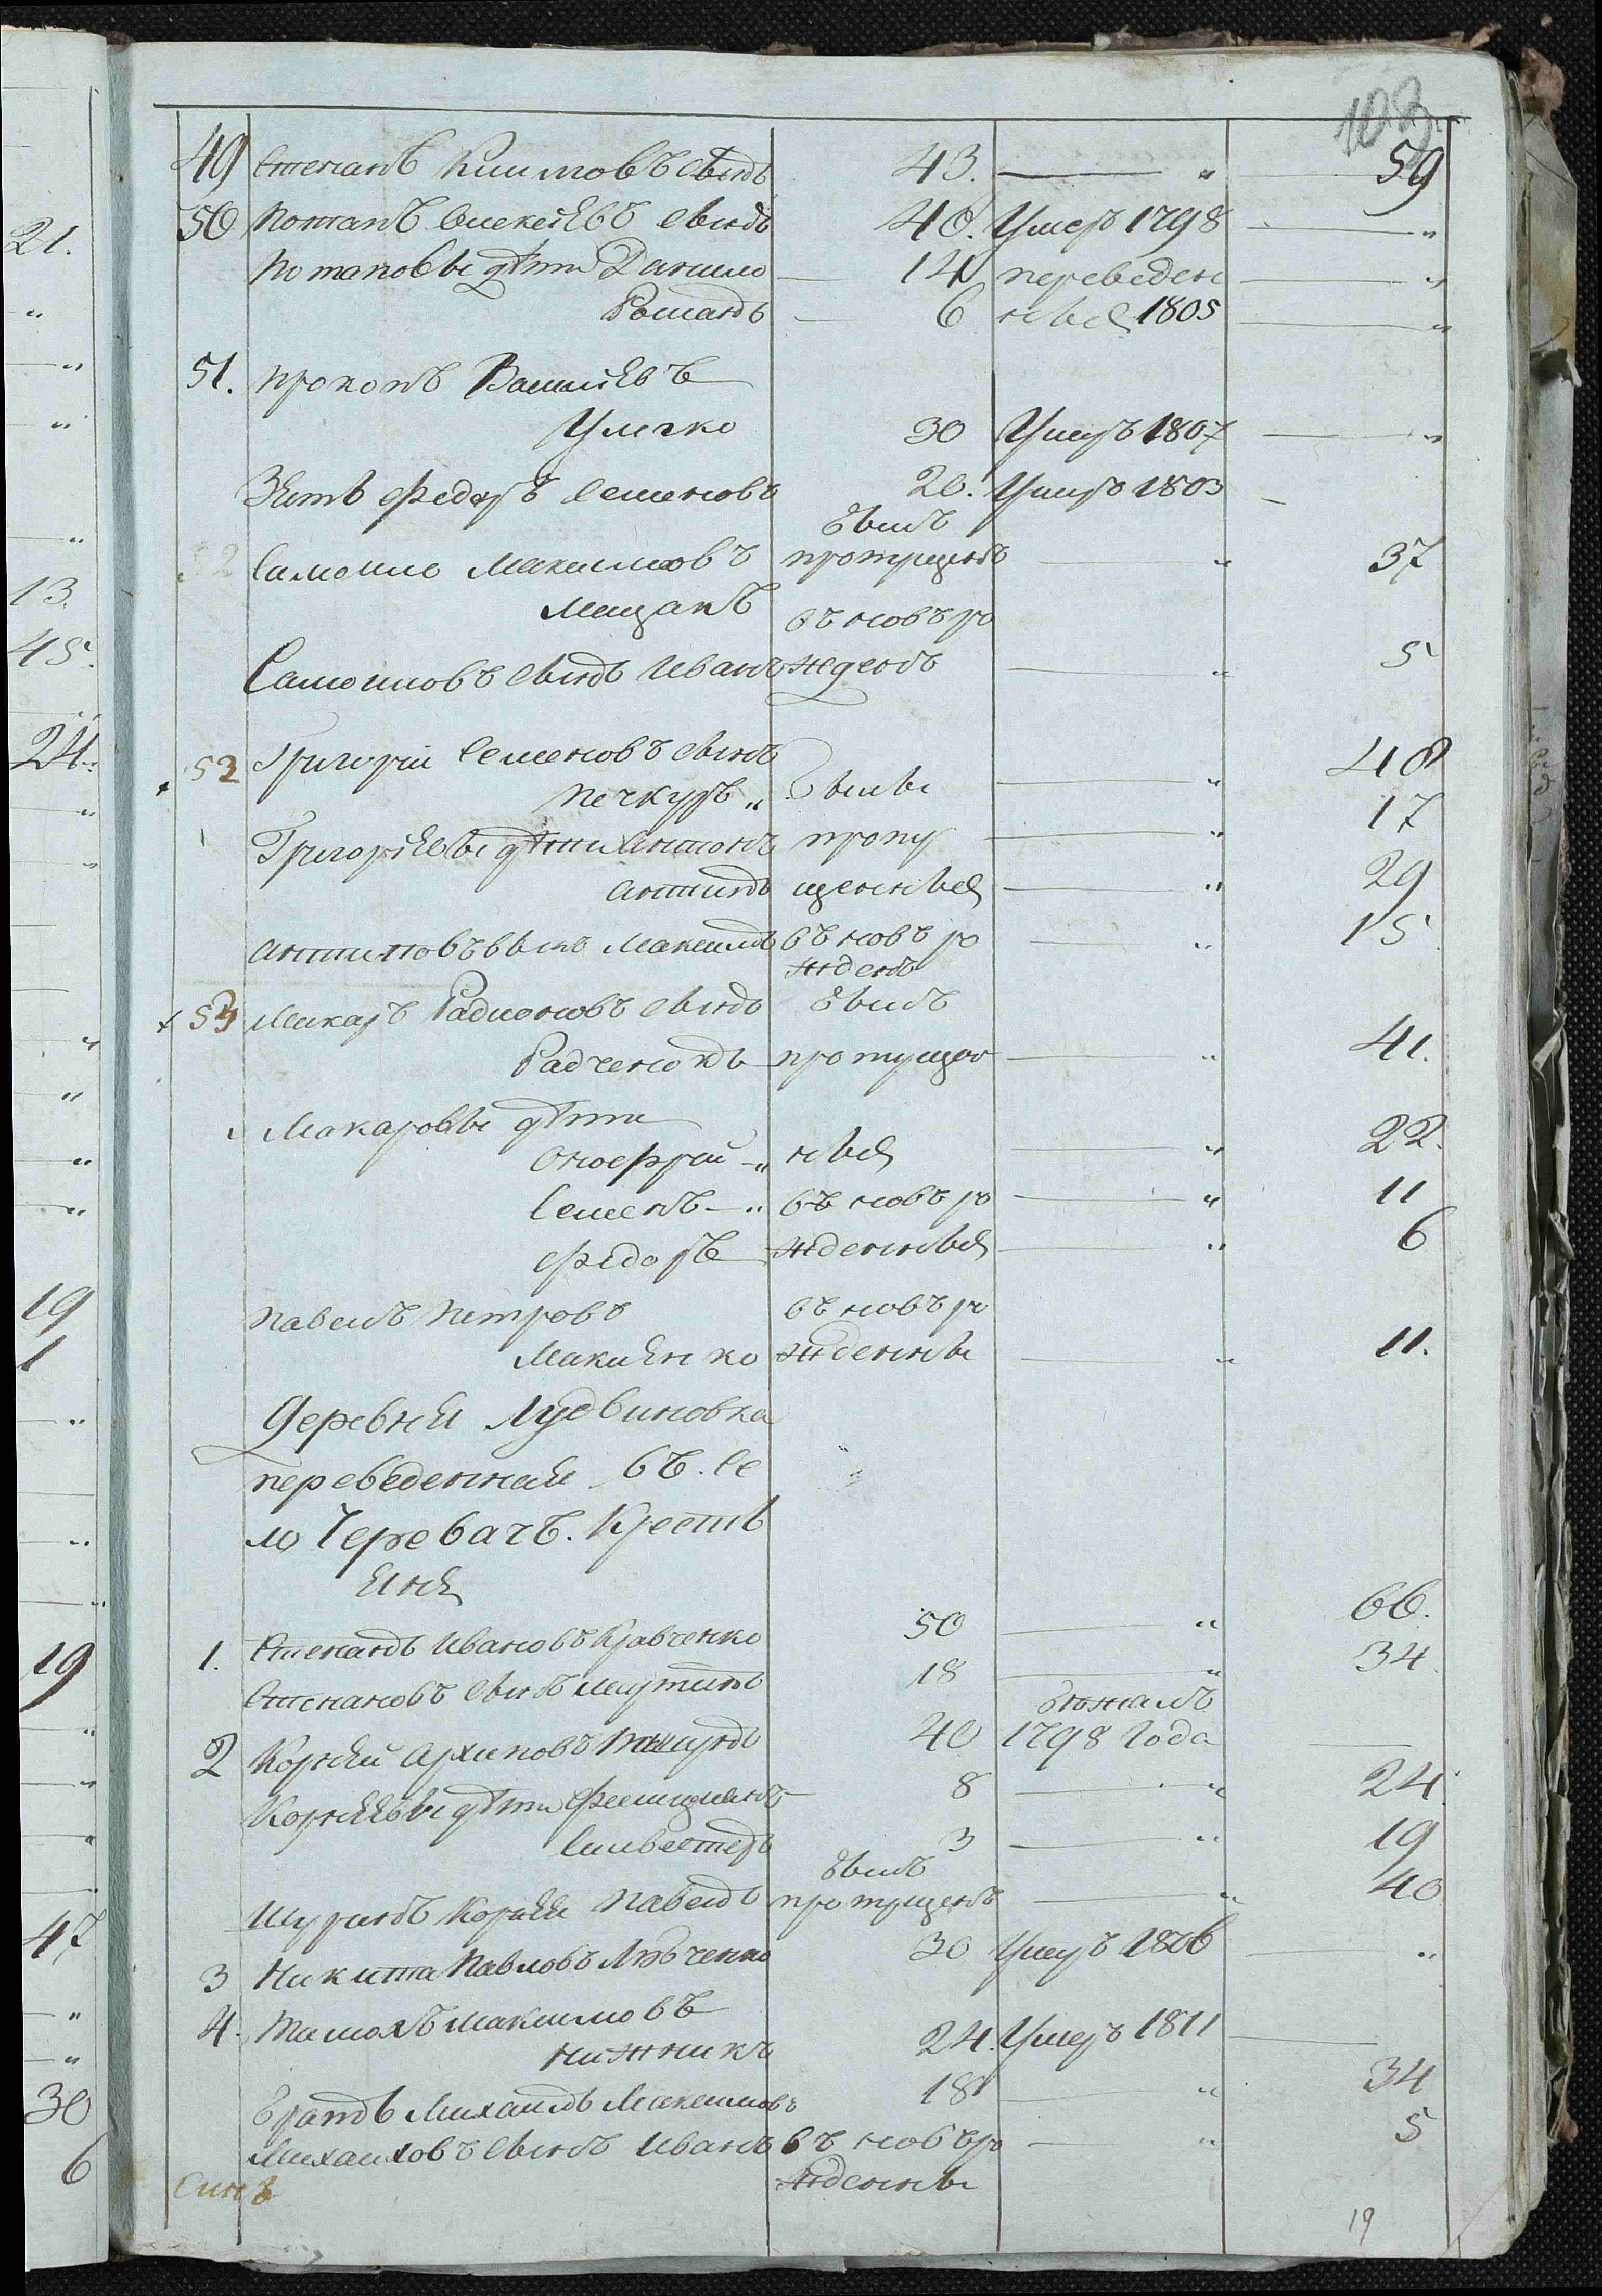 103.
49 Степанъ Климовъ сынъ 43. — „ 59
50 Потапъ Алексѣевъ сынъ 40. Умеръ 1798 — „
Потаповы дѣти Данило — 14 переведен — „
Романъ — 6 ныя 1805 — „
51. Прокопъ Васильевъ
Улечко 30 Умеръ 1807 — „
Зять Федоръ Семеновъ 20. Умеръ 1803 —
былъ
52 Самойло Максимовъ пропущенъ — „ 37
Мицанъ
въ новъ ро
Самойловъ сынъ Иванъ жденъ — „ 5
53 Григорій Семеновъ сынъ 48
Печкуръ „ былы — „
Григорьевы дѣти Антонъ пропу — „ 17
Антипъ щенныя — „ 29
Антиповъ сынъ Максимъ въ новъ ро — „ 15
жденъ
54 Макаръ Радионовъ сынъ былъ
Радченокъ пропущен — „ 41.
Макаровы дѣти
Онофрій — „ ныя — „ 22.
Семенъ — „ въ новъ ро — „ 11
Федоръ жденныя — „ 6
Павелъ Петровъ въ новъ ро
Макиенко жденны — „ 11.
Деревня Лудвиновка
переведенная въ се
ло Черевачъ. Кресть
яня
1. Степанъ Ивановъ Кравченко 50 — „ 66.
Степановъ сынъ 18 — „ 34
бѣжалъ
2 Корнѣй Архиповъ 40 1798 года —
Корнѣевы дѣти 8 — „ 24
Сильвестеръ 3 — „ 19
былъ
Шуринъ Корнѣя Павелъ пропущенъ — „ 40
3 Никита Павловъ Любченко 30 Умеръ 1806 — „
4. Тимохъ Максимовъ
Нижникъ 24. Умеръ 1811 —
Братъ Михаилъ Максимовъ 18 — „ 34
Михайловъ сынъ Иванъ въ новъ ро — „ 5
жденны
Синъ
19
21.
„
13.
45.
24.
19
1
19
47
30
6